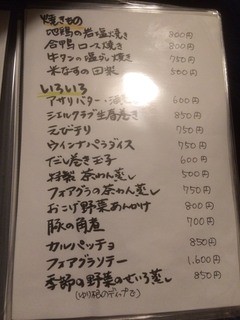 焼きもの
地鶏の岩塩焼き 800円
合鴨ロース焼き 800円
牛タンの塩焼き 750円
米なすの田楽 500円
いろいろ
アサリバター・酒蒸し 600円
シェルクラブ生春巻き 850円
えびチリ 750円
ウインナパラダイス 750円
だし巻き玉子 600円
特製 茶わん蒸し 500円
フォアグラの茶わん蒸し 750円
おこげ野菜あんかけ 800円
豚の角煮 700円
カルパッチョ 850円
フォアグラソテー 1,600円
季節の野菜のせいろ蒸し 850円
のディップで)